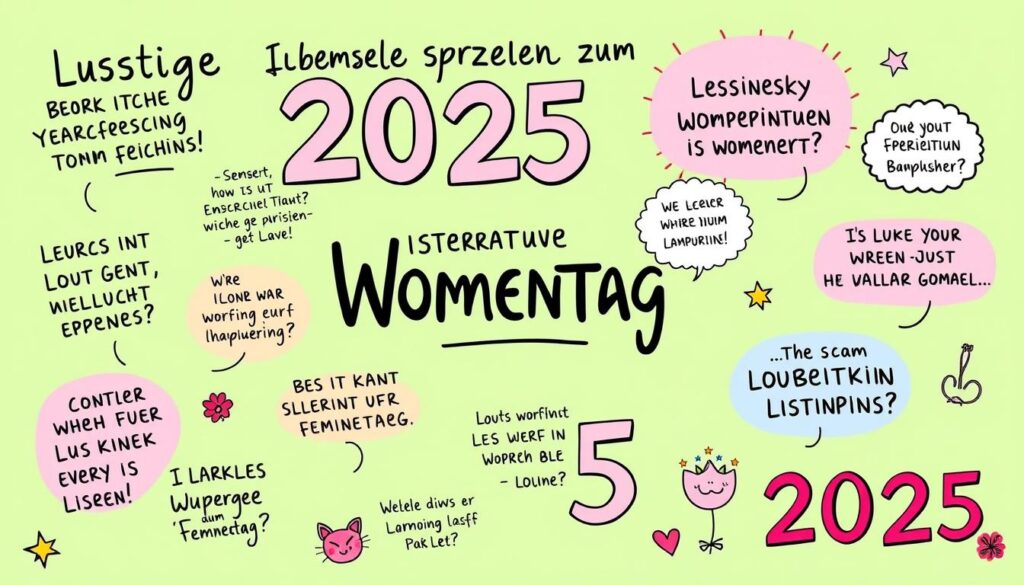 Lusstige
BEORK ITCHE
YEARCFEESCING
TONM FEICHINS!
Ilbemsele sprzelen zum
2025
-Sensert,
how IS UT
Enscrcliel Tiant?
wiche ge pirisien-
-get Lave!
Lessinesky
WOMPEPINTUEN
IS WOMENERT?
Oue yout
FPERIEITIUN
Banplusher?
WE LCELER
WHIRE IIUIM
LAMPURIINE!
ISTERRATUVE
WOMENTAG
LEURCS INT
LOUT GENT,
WIELLUCHT
EPPENES?
W're
ILONR WAR
worfing eurf
lhapluering?
I'S LUKE YOUR
WREEN-JUST
HE VALLAR GOMAEL...
...The scam
LOUBEITKIIN
LISTINPINS?
CONTLER
WHEH FUER
LUS KINEK
EVERY IS
LISEEN!
BES IT KANT
SLLERINT UFR
FEMINETAEG.
Louts worfinst
LES WERF IN
WOPRCH BLE
- Louine?
5
I LARKLES
Wupergee
aum
'Femnetag?
Welele diws er
Larnoing lasff
Pak Let?
2025